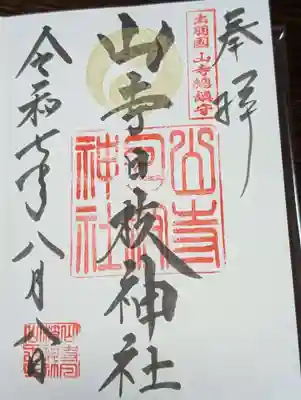 奉拝
出羽國 山寺総鎮守
山寺日枝神社
山寺
日枝
神社
令和七年八月八日